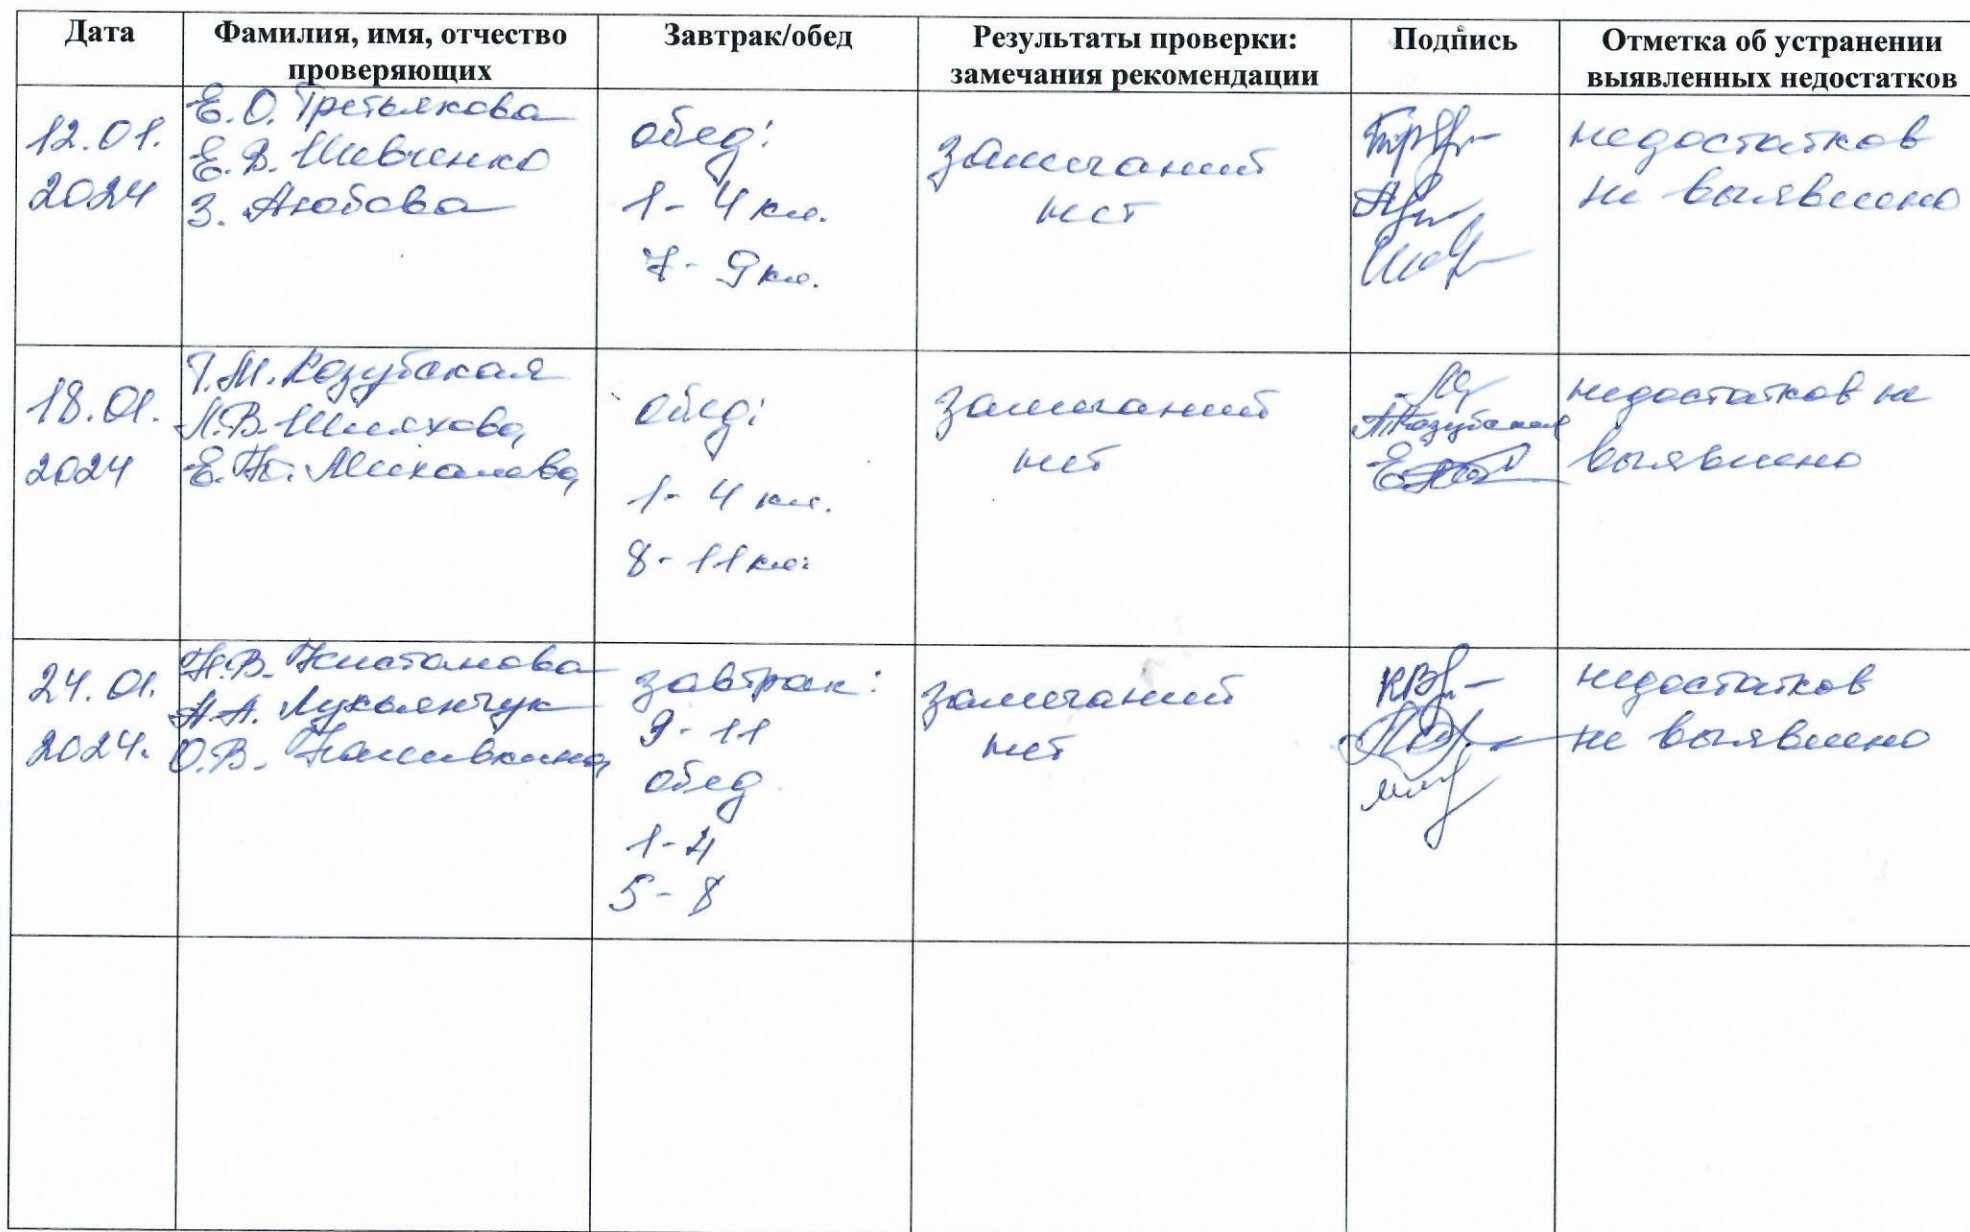 Дата
Фамилия, имя, отчество
проверяющих
Завтрак/обед
Результаты проверки:
замечания рекомендации
Подпись
Отметка об устранении
выявленных недостатков
12.01.
2024
Е.О. Третьякова
Е.В. Шевченко
З. Аюбова
обед:
1-4 кл.
7-9 кл.
замечаний
нет
недостатков
не выявлено
18.01.
2024
Т.М. Козубская
Л.В. Шиляхова
Е. Михалева
обед:
1-4 кл.
8-11 кл.
замечаний
нет
Козубская
недостатков не
выявлено
24.01.
2024.
Н.В. Кистанова
Н.А. Лукьянчук
О.В.
завтрак:
9-11
обед
1-4
5-8
замечаний
нет
недостатков
не выявлено